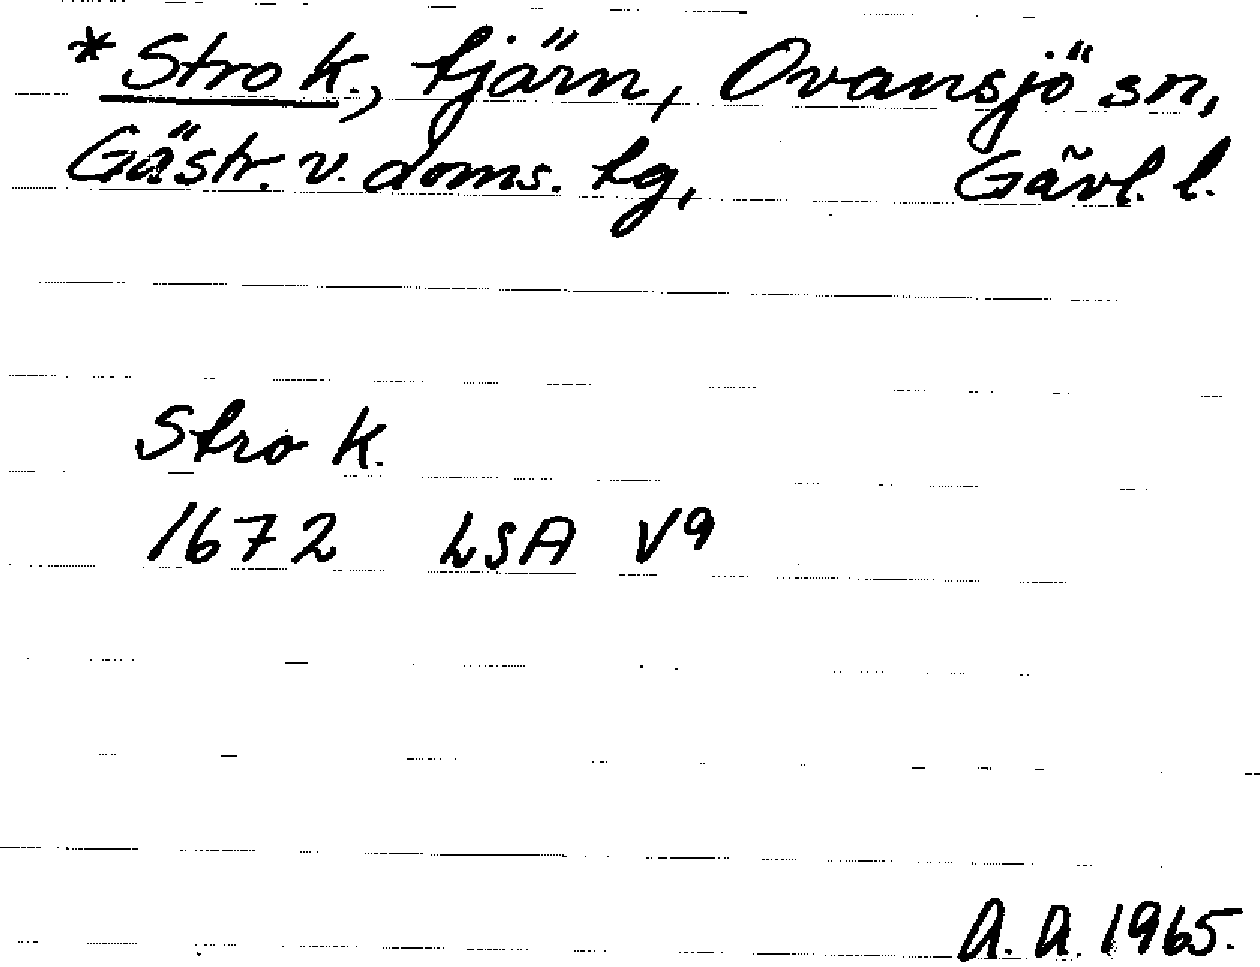 *Stro k., tjärn, Ovansjö sn,
Gästr. v. doms. tg, Gävl. l.
Stro k.
1672 LSA V9
A. A. 1965.